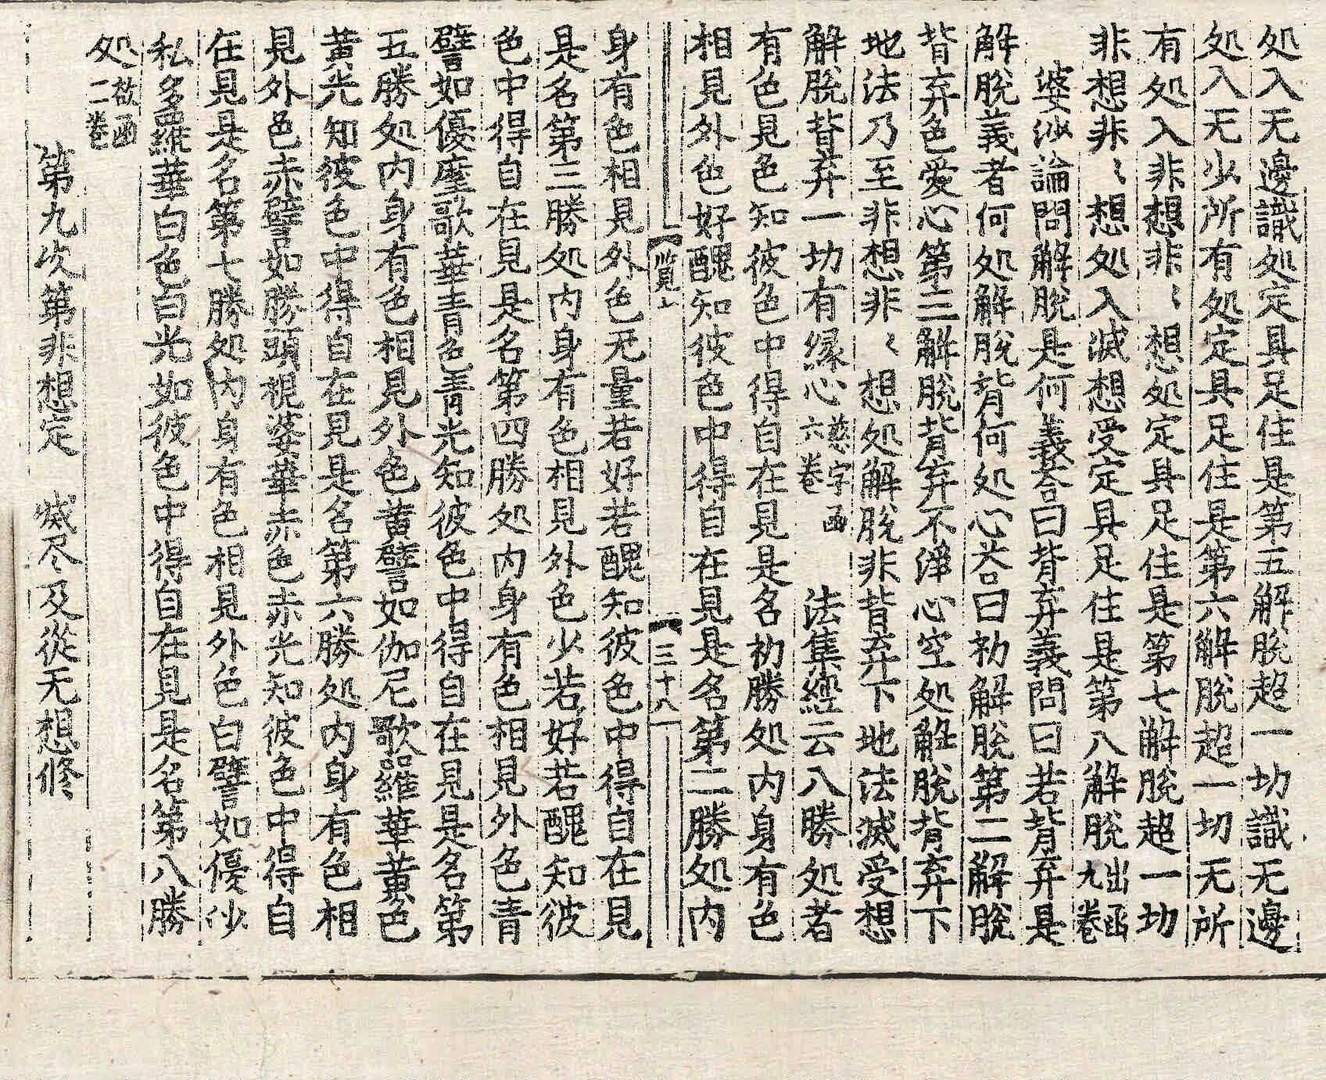 処入无邊識処定具足住是第五解脫超一切識无邊
処入无少所有処定具足住是第六解脫超一切无所
有処入非想非〻想処定具足住是第七解脫超一切
非想非〻想処入滅想受定具足住是第八解脫出函九卷
婆沙論問解脫是何義荅曰背弃義問曰若背弃是
解脫義者何処解脫背何処心荅曰初解脫第二解脫
背弃色愛心第三解脫背弃不淨心空処解脫背弃下
地法乃至非想非〻想処解脫非背弃下地法滅受想
解脫背弃一切有縁心慈字函六卷 法集經云八勝処者
有色見色知彼色中得自在見是名初勝処内身有色
相見外色好醜知彼色中得自在見是名第二勝処内
覧上 三十八
身有色相見外色无量若好若醜知彼色中得自在見
是名第三勝処内身有色相見外色少若好若醜知彼
色中得自在見是名第四勝処内身有色相見外色青
譬如優摩歌華青色青光知彼色中得自在見是名第
五勝処内身有色相見外色黄譬如伽尼歌羅華黄色
黄光知彼色中得自在見是名第六勝処内身有色相
見外色赤譬如勝頭視婆華赤色赤光知彼色中得自
在見是名第七勝処内身有色相見外色白譬如優沙
私多羅華白色白光如彼色中得自在見是名第八勝
処欲函二卷
第九次第非想定 滅尽及從无想修